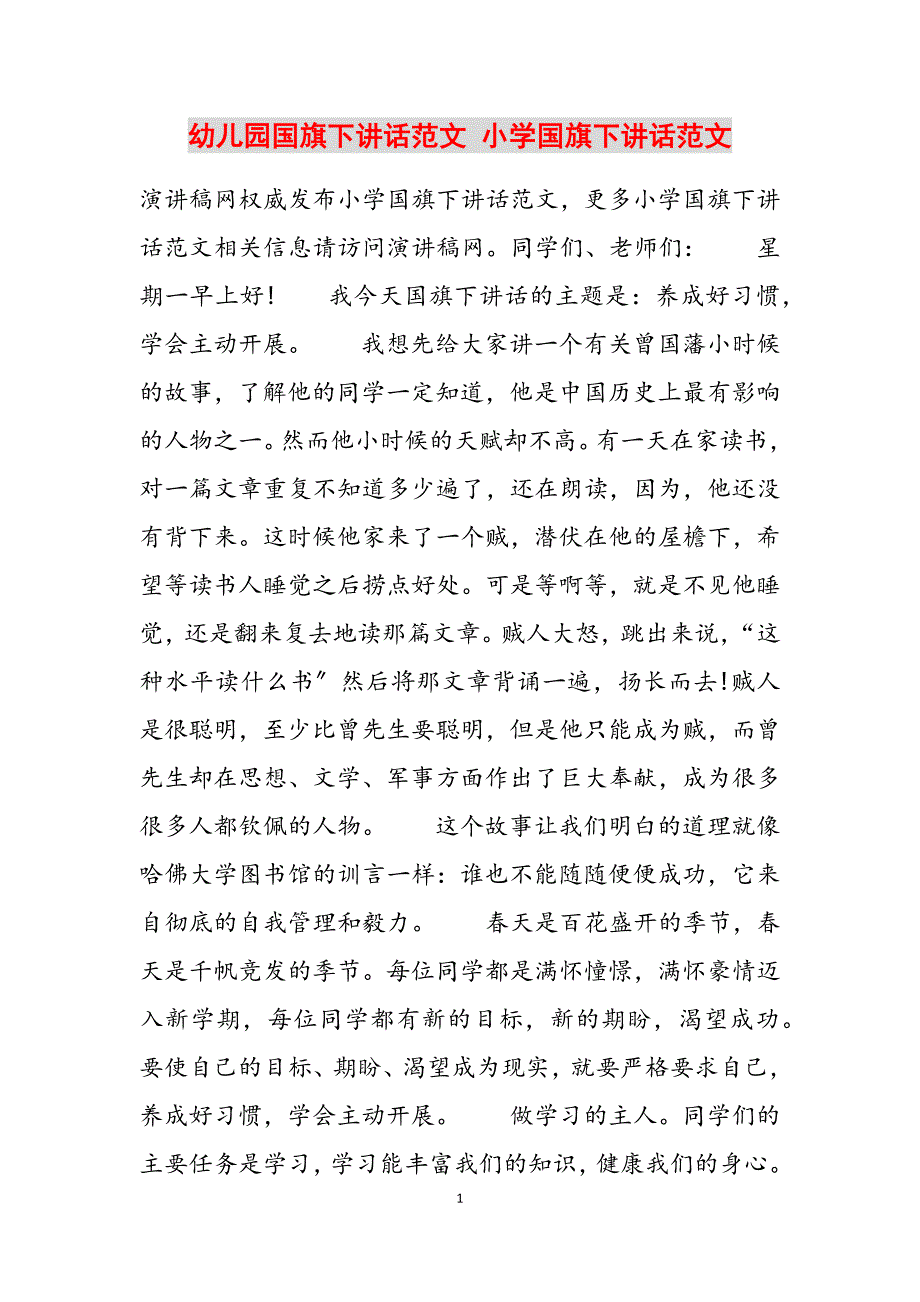 幼儿园国旗下讲话范文 小学国旗下讲话范文
演讲稿网权威发布小学国旗下讲话范文，更多小学国旗下讲
话范文相关信息请访问演讲稿网。同学们、老师们：　　星
期一早上好！　　我今天国旗下讲话的主题是：养成好习惯，
学会主动开展。　　我想先给大家讲一个有关曾国藩小时候
的故事，了解他的同学一定知道，他是中国历史上最有影响
的人物之一。然而他小时候的天赋却不高。有一天在家读书，
对一篇文章重复不知道多少遍了，还在朗读，因为，他还没
有背下来。这时候他家来了一个贼，潜伏在他的屋檐下，希
望等读书人睡觉之后捞点好处。可是等啊等，就是不见他睡
觉，还是翻来复去地读那篇文章。贼人大怒，跳出来说，“这
种水平读什么书〞然后将那文章背诵一遍，扬长而去!贼人
是很聪明，至少比曾先生要聪明，但是他只能成为贼，而曾
先生却在思想、文学、军事方面作出了巨大奉献，成为很多
很多人都钦佩的人物。　　这个故事让我们明白的道理就像
哈佛大学图书馆的训言一样：谁也不能随随便便成功，它来
自彻底的自我管理和毅力。　　春天是百花盛开的季节，春
天是千帆竞发的季节。每位同学都是满怀憧憬，满怀豪情迈
入新学期，每位同学都有新的目标，新的期盼，渴望成功。
要使自己的目标、期盼、渴望成为现实，就要严格要求自己，
养成好习惯，学会主动开展。　　做学习的主人。同学们的
主要任务是学习，学习能丰富我们的知识，健康我们的身心。
1